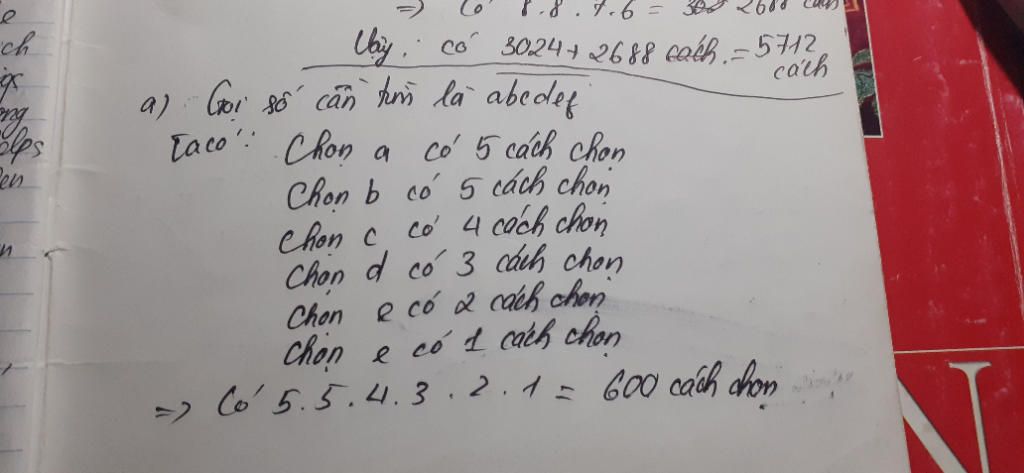 e
ch
ong
en
n
=> Có 8.8.7.6 = 2688 cách
Vậy: có 3024 + 2688 cách. = 5712
cách
a) Gọi số cần tìm là abcdef
Ta có: Chọn a có 5 cách chọn
Chọn b có 5 cách chọn
Chọn c có 4 cách chọn
Chọn d có 3 cách chọn
Chọn e có 2 cách chọn
Chọn e có 1 cách chọn
=> Có 5.5.4.3.2.1 = 600 cách chọn
N